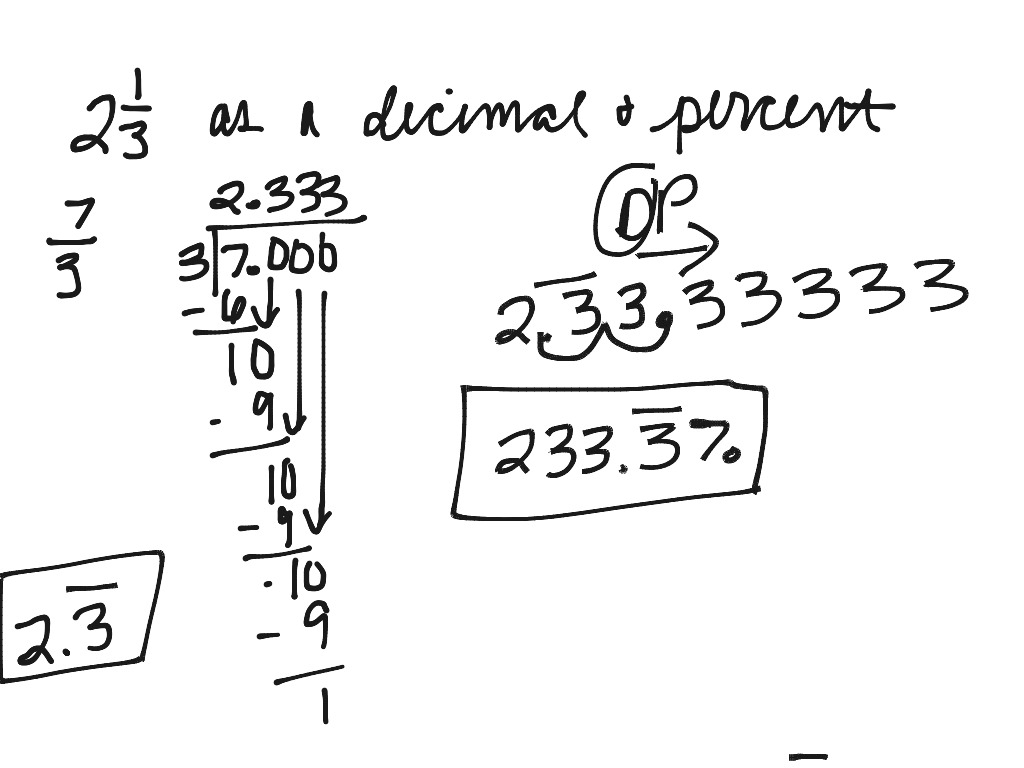 2 1/3 as a decimal & percent
7/3
2.333
3 7.000
- 6
10
- 9
10
- 9
- 10
- 9
1
2.3̅
DP
2.3̅3.33333
233.3̅%